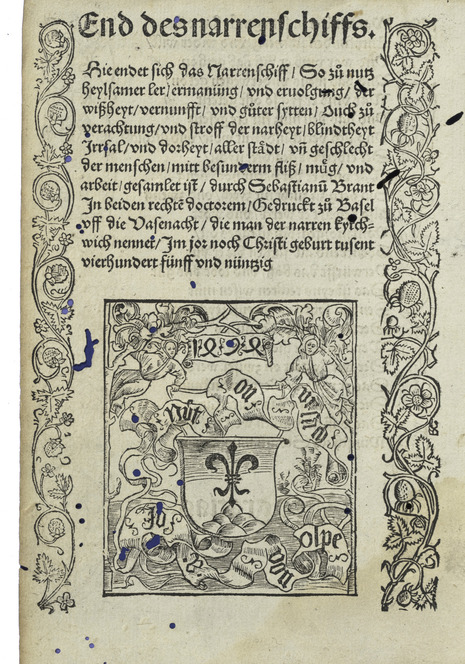 End des narrenschiffs.
Hie endet sich das Narrenschiff / So zů nutz
heylsamer ler / ermanung / vnd eruolgung / der
wißheyt / vernunfft / vnd gůter sytten / Ouch zů
verachtung / vnd stroff der narheyt / blindtheyt
Irrsal / vnd dorheyt / aller städt / vñ geschlecht
der menschen / mitt besunderm fliß / můg / vnd
arbeit / gesamlet ist / durch Sebastianū Brant
In beiden rechtē doctorem / Gedruckt zů Basel
vff die Vasenacht / die man der narren kyrch-
wich nennet / Im jor noch Christi geburt tusent
vierhundert fünff vnd nüntzig
Nüt
on
vrsach
Jo
B
von
olpe